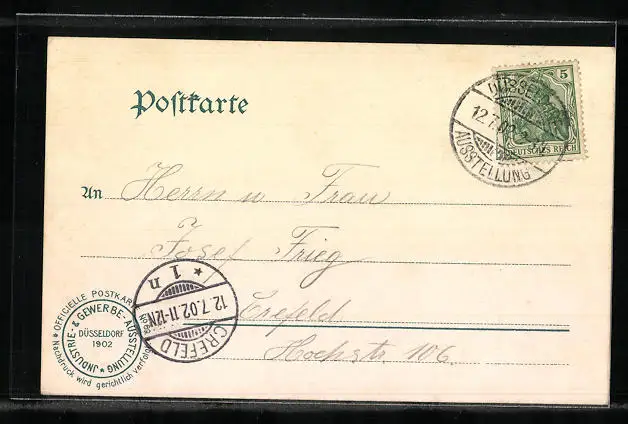 Postkarte
5
DEUTSCHES REICH
DÜSSELDORF
12.7.02
AUSSTELLUNG
An Herrn u Frau
Josef Frieg
Crefeld
Hochstr. 106.
CREFELD
12.7.02.11-12N
* 1 n
OFFICIELLE POSTKARTE
JNDUSTRIE- & GEWERBE-AUSSTELLUNG
DÜSSELDORF
1902
* Nachdruck wird gerichtlich verfolgt *